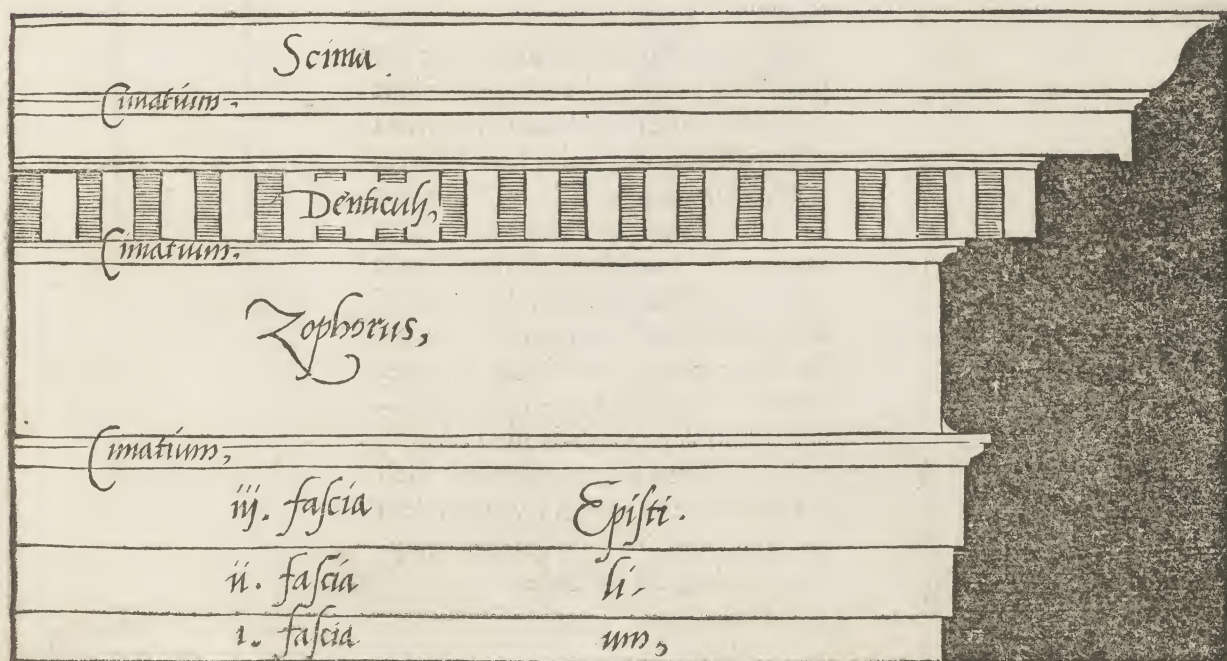 Scima
Cimatium.
Denticuli,
Cimatium.
Zophorus,
Cimatium,
iij. fascia Episti.
ii. fascia li-
i. fascia um,